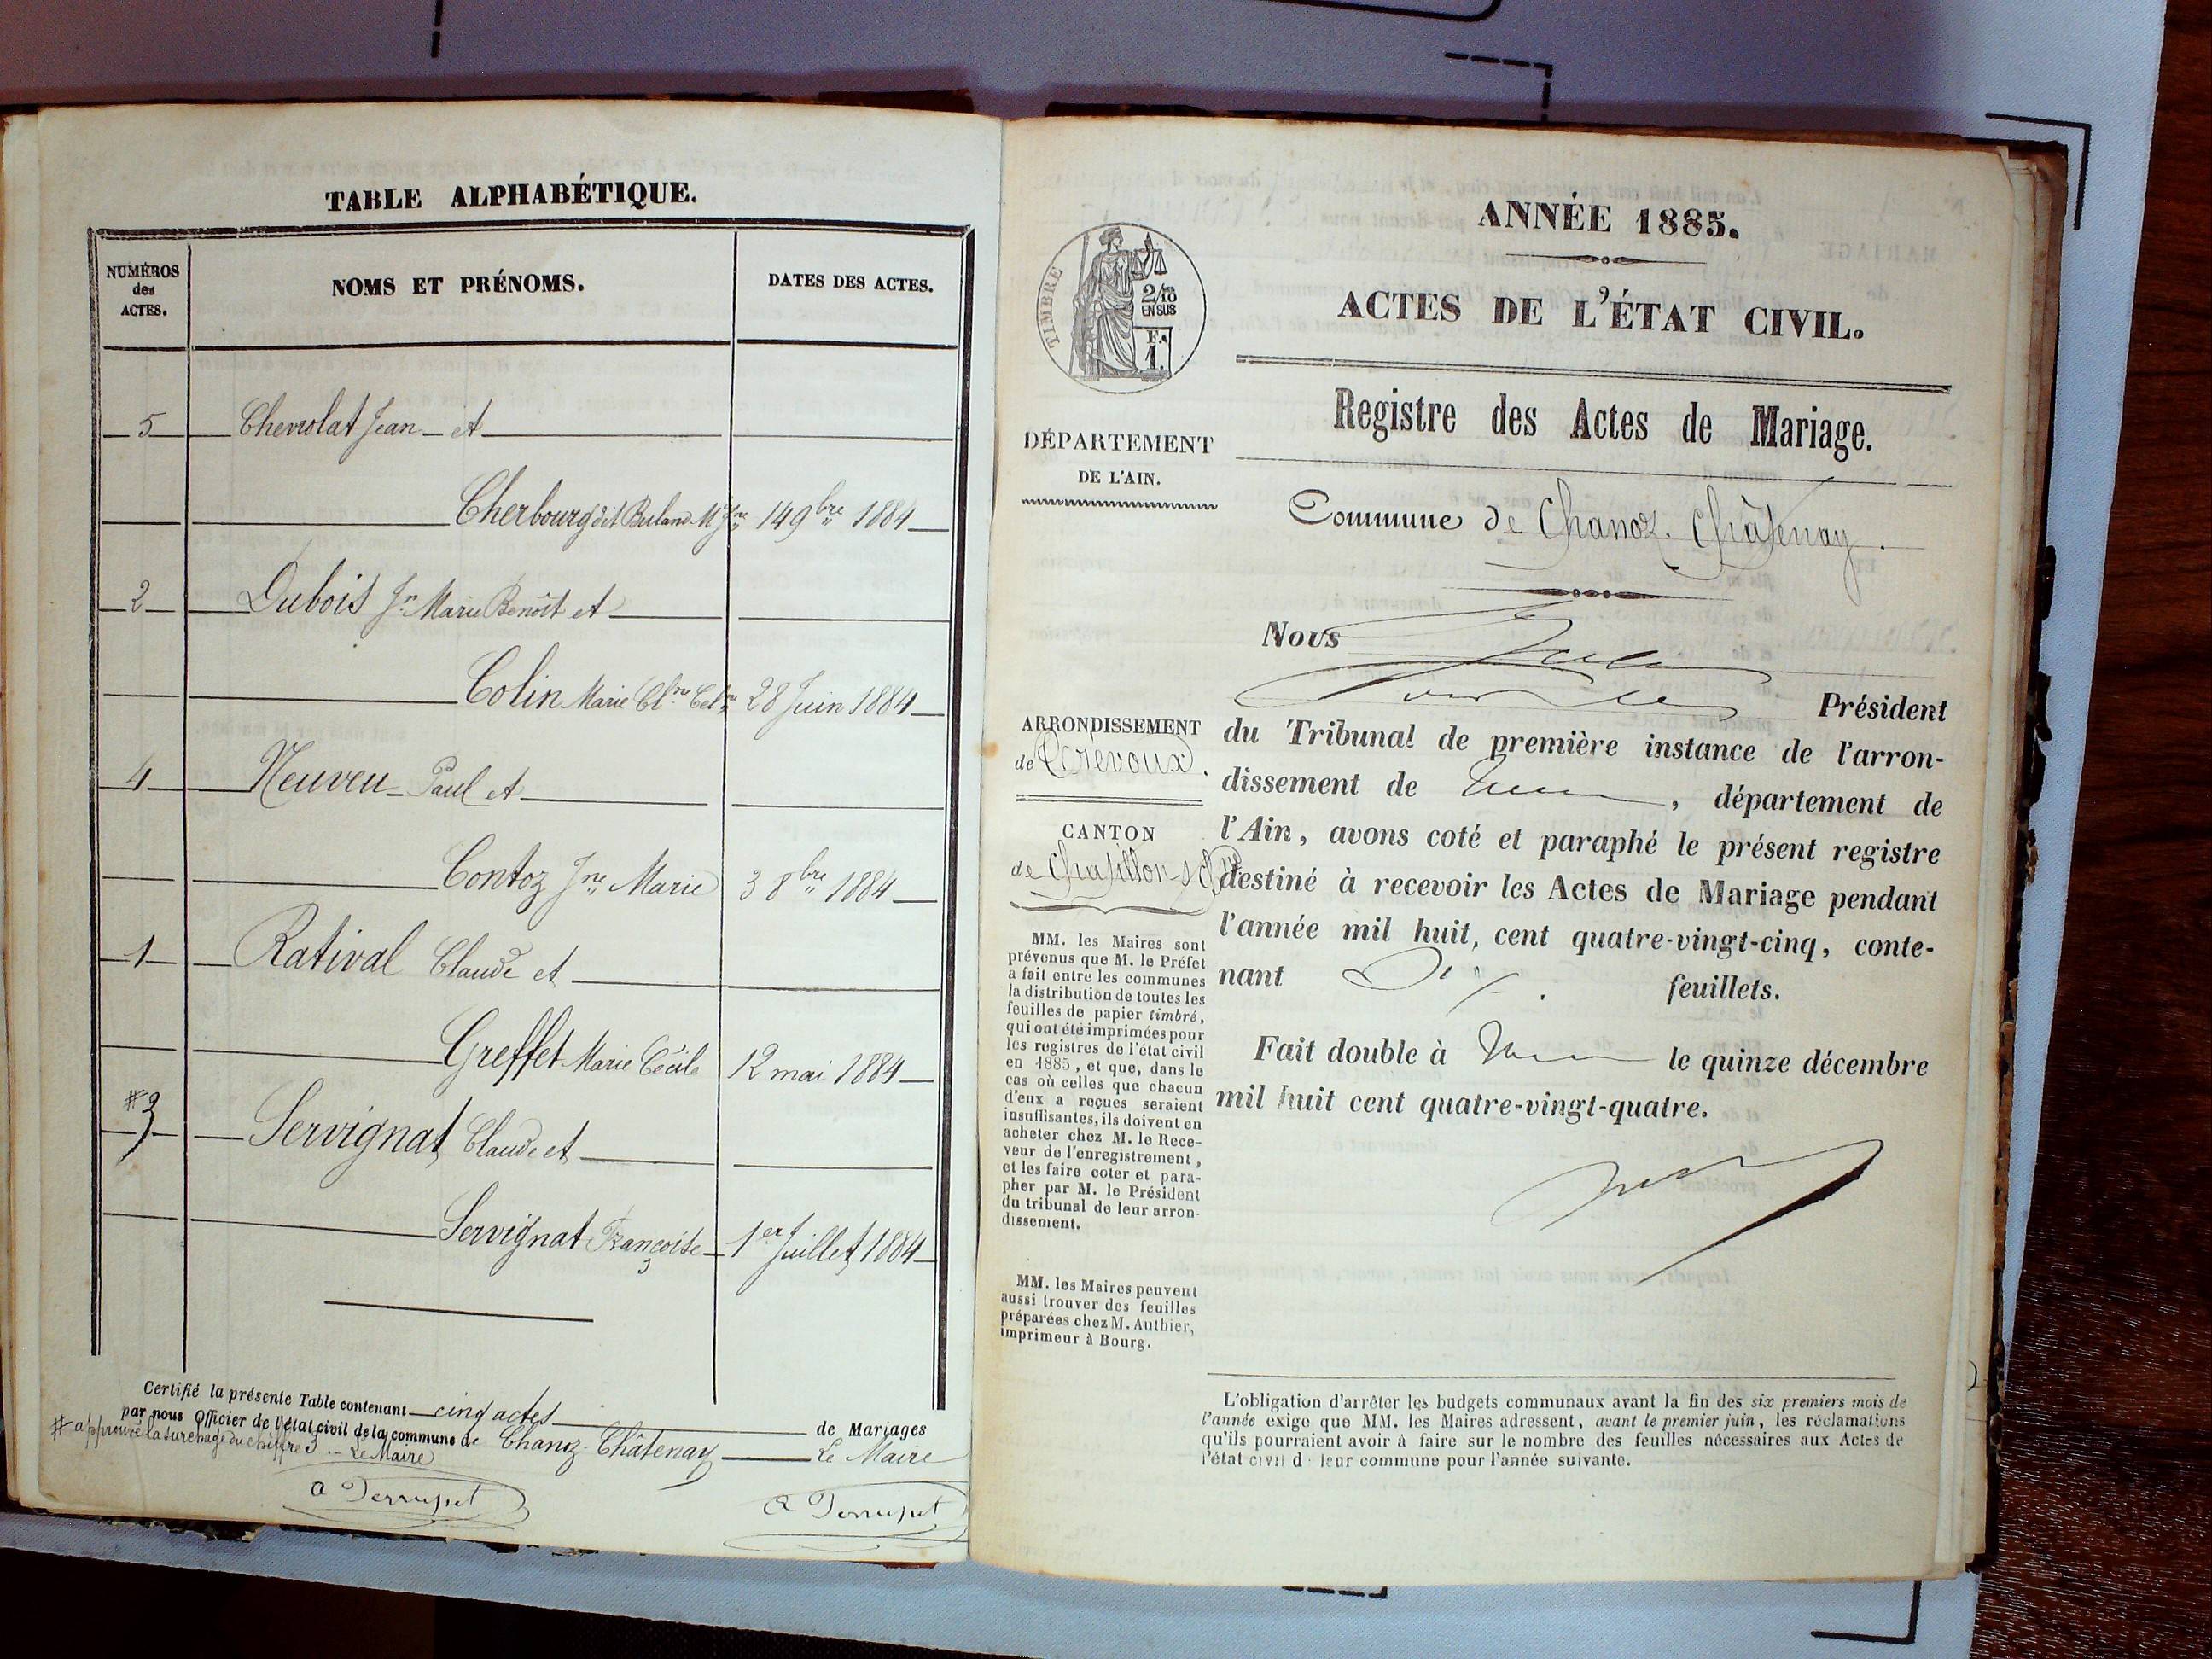 TABLE ALPHABÉTIQUE.
NUMÉROS
des
ACTES.
NOMS ET PRÉNOMS.
DATES DES ACTES.
5 Chevrolat Jean et
Cherbourg dit Buland 14 9bre 1884
2 Dubois Jn Marie Benoît et
Colin Marie 28 Juin 1884
4 Neuveu Paul et
Contoz Jne Marie 3 8bre 1884
1 Rativat Claude et
Greffet Marie Cécile 12 mai 1884
# 3 Servignat Claude et
Servignat Françoise 1er Juillet 1884
Certifié la présente Table contenant cinq actes de Mariages
par nous Officier de l'état civil de la commune de Chanoz-Châtenay Le Maire
# approuvé la surchage du chiffre 3 Le Maire
ANNÉE 1885.
TIMBRE
2/10
EN SUS
F.
1.
ACTES DE L'ÉTAT CIVIL.
Registre des Actes de Mariage.
DÉPARTEMENT
DE L'AIN.
Commune de Chanoz-Châtenay.
ARRONDISSEMENT
de Trévoux.
CANTON
de Chatillon
MM. les Maires sont
prévenus que M. le Préfet
a fait entre les communes
la distribution de toutes les
feuilles de papier timbré,
qui ont été imprimées pour
les registres de l'état civil
en 1885, et que, dans le
cas où celles que chacun
d'eux a reçues seraient
insuffisantes, ils doivent en
acheter chez M. le Rece-
veur de l'enregistrement,
et les faire coter et para-
pher par M. le Président
du tribunal de leur arron-
dissement.
MM. les Maires peuvent
aussi trouver des feuilles
préparées chez M. Authier,
imprimeur à Bourg.
Nous
Président
du Tribunal de première instance de l'arron-
dissement de , département de
l'Ain, avons coté et paraphé le présent registre
destiné à recevoir les Actes de Mariage pendant
l'année mil huit, cent quatre-vingt-cinq, conte-
nant Dix feuillets.
Fait double à le quinze décembre
mil huit cent quatre-vingt-quatre.
L'obligation d'arrêter les budgets communaux avant la fin des six premiers mois de
l'année exige que MM. les Maires adressent, avant le premier juin, les réclamations
qu'ils pourraient avoir à faire sur le nombre des feuilles nécessaires aux Actes de
l'état civil d leur commune pour l'année suivante.